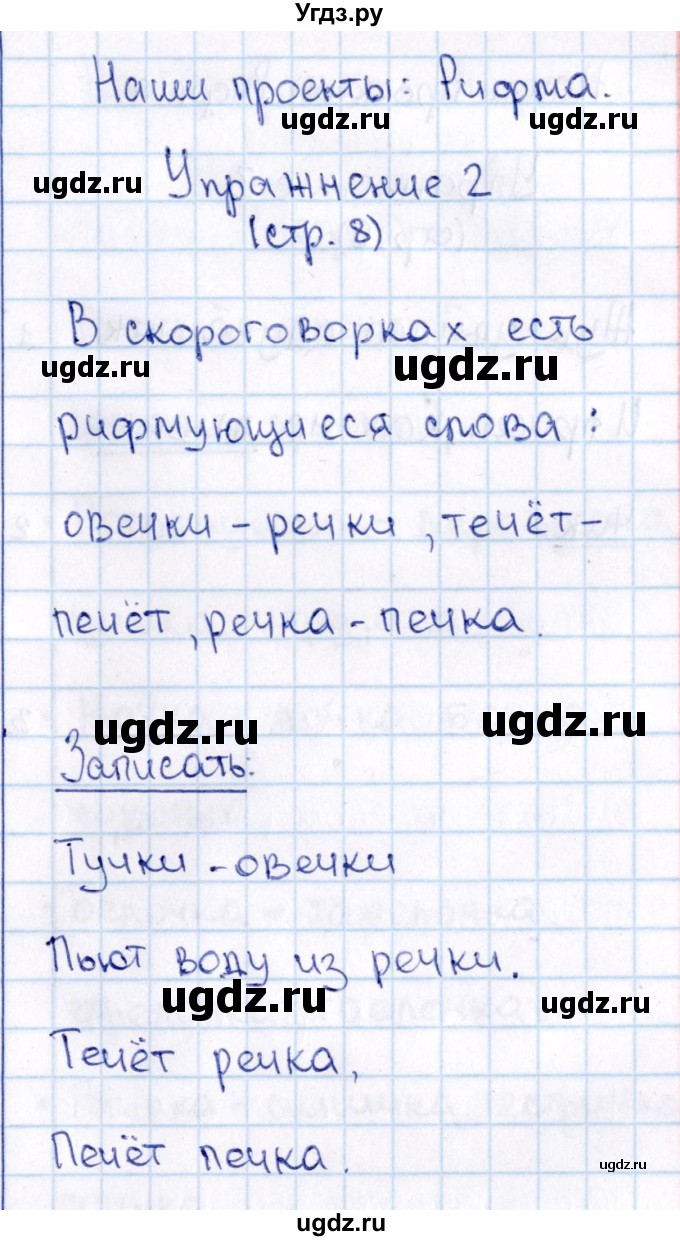 Угдз.ру
Наши проекты: Рифма.
ugdz.ru
ugdz.ru
Упражнение 2
(стр. 8)
В скороговорках есть
ugdz.ru
ugdz.ru
рифмующиеся слова:
овечки - речки, течёт -
печёт, речка - печка.
ugdz.ru
ugdz.ru
Записать:
Тучки - овечки
Пьют воду из речки.
ugdz.ru
ugdz.ru
Течёт речка,
Печёт печка.
ugdz.ru
ugdz.ru